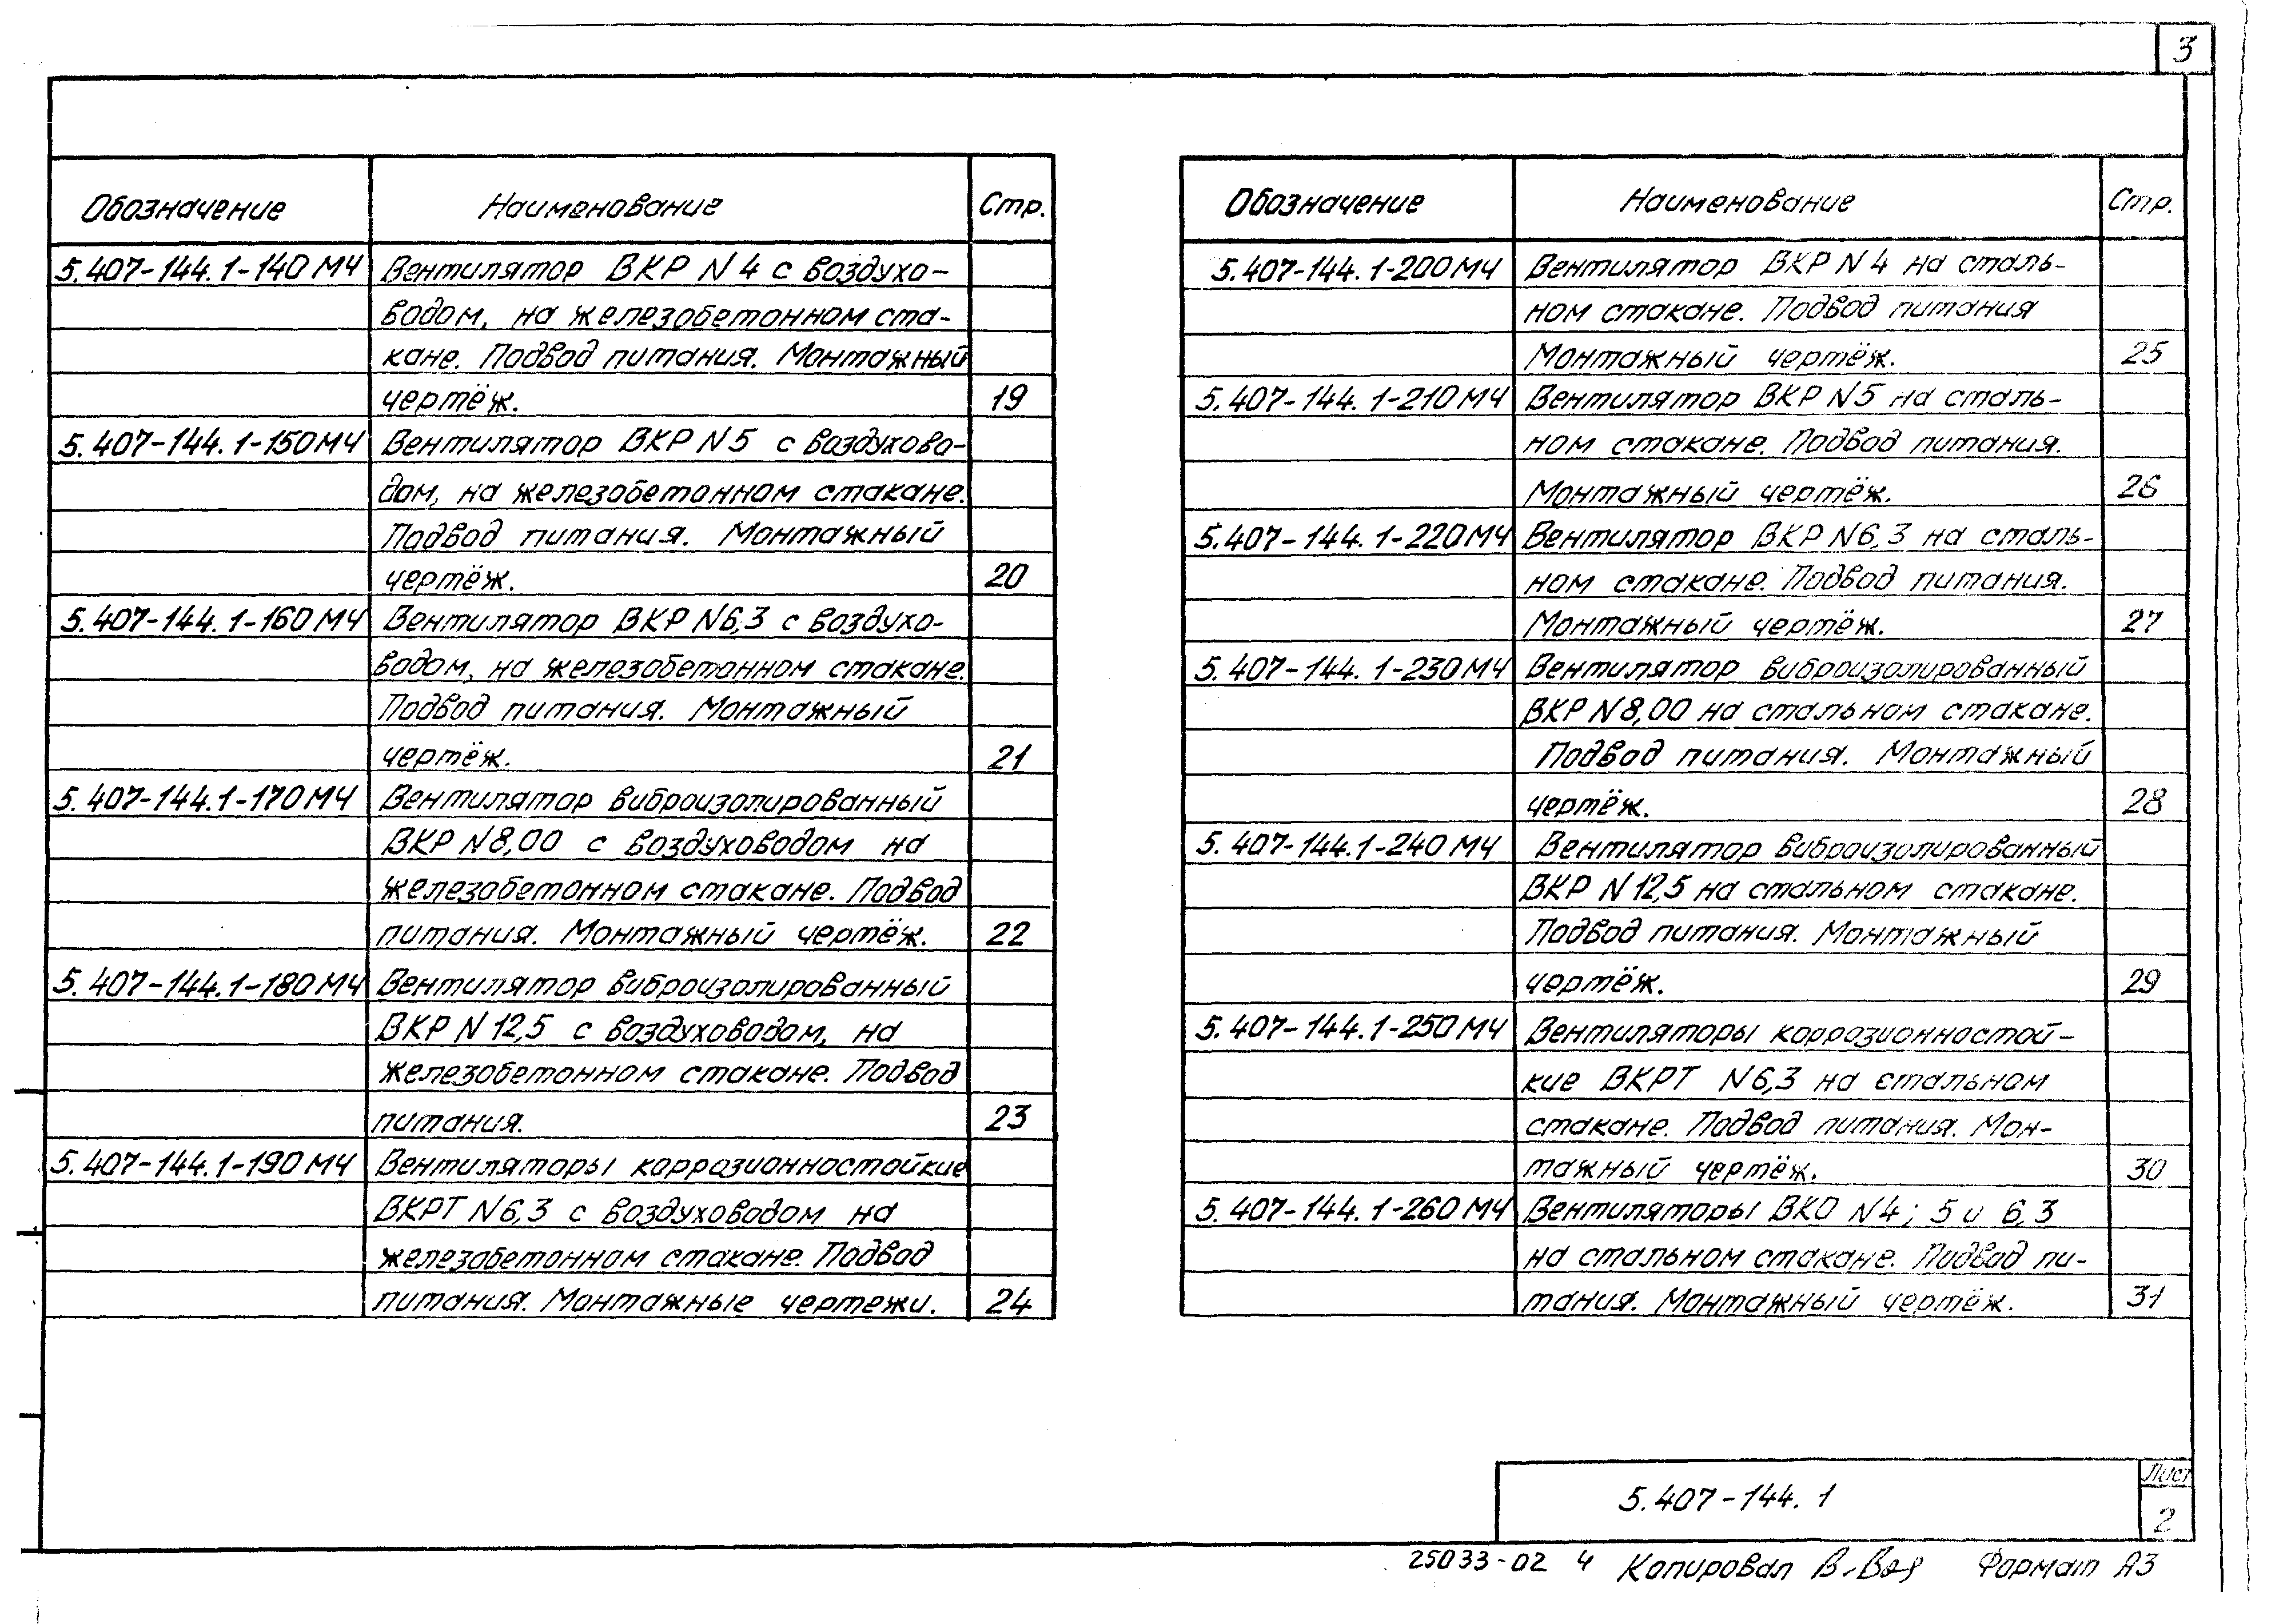 3
Обозначение Наименование Стр.
5.407-144.1-140МЧ Вентилятор ВКР N4 с воздухо-
водом, на железобетонном ста-
кане. Подвод питания. Монтажный
чертёж. 19
5.407-144.1-150МЧ Вентилятор ВКР N5 с воздухово-
дом, на железобетонном стакане.
Подвод питания. Монтажный
чертёж. 20
5.407-144.1-160МЧ Вентилятор ВКР N6,3 с воздухо-
водом, на железобетонном стакане.
Подвод питания. Монтажный
чертёж. 21
5.407-144.1-170МЧ Вентилятор виброизолированный
ВКР N8,00 с воздуховодом на
железобетонном стакане. Подвод
питания. Монтажный чертёж. 22
5.407-144.1-180МЧ Вентилятор виброизолированный
ВКР N 12,5 с воздуховодом, на
железобетонном стакане. Подвод
питания. 23
5.407-144.1-190МЧ Вентиляторы коррозионностойкие
ВКРТ N6,3 с воздуховодом на
железобетонном стакане. Подвод
питания. Монтажные чертежи. 24
Обозначение Наименование Стр.
5.407-144.1-200МЧ Вентилятор ВКР N4 на сталь-
ном стакане. Подвод питания
Монтажный чертёж. 25
5.407-144.1-210МЧ Вентилятор ВКР N5 на сталь-
ном стакане. Подвод питания.
Монтажный чертёж. 26
5.407-144.1-220МЧ Вентилятор ВКР N6,3 на сталь-
ном стакане. Подвод питания.
Монтажный чертёж. 27
5.407-144.1-230МЧ Вентилятор виброизолированный
ВКР N8,00 на стальном стакане.
Подвод питания. Монтажный
чертёж. 28
5.407-144.1-240МЧ Вентилятор виброизолированный
ВКР N12,5 на стальном стакане.
Подвод питания. Монтажный
чертёж. 29
5.407-144.1-250МЧ Вентиляторы коррозионностой-
кие ВКРТ N6,3 на стальном
стакане. Подвод питания. Мон-
тажный чертёж. 30
5.407-144.1-260МЧ Вентиляторы ВКО N4; 5 и 6,3
на стальном стакане. Подвод пи-
тания. Монтажный чертёж. 31
5.407-144.1
Лист
2
25033-02 4 Копировал Формат А3